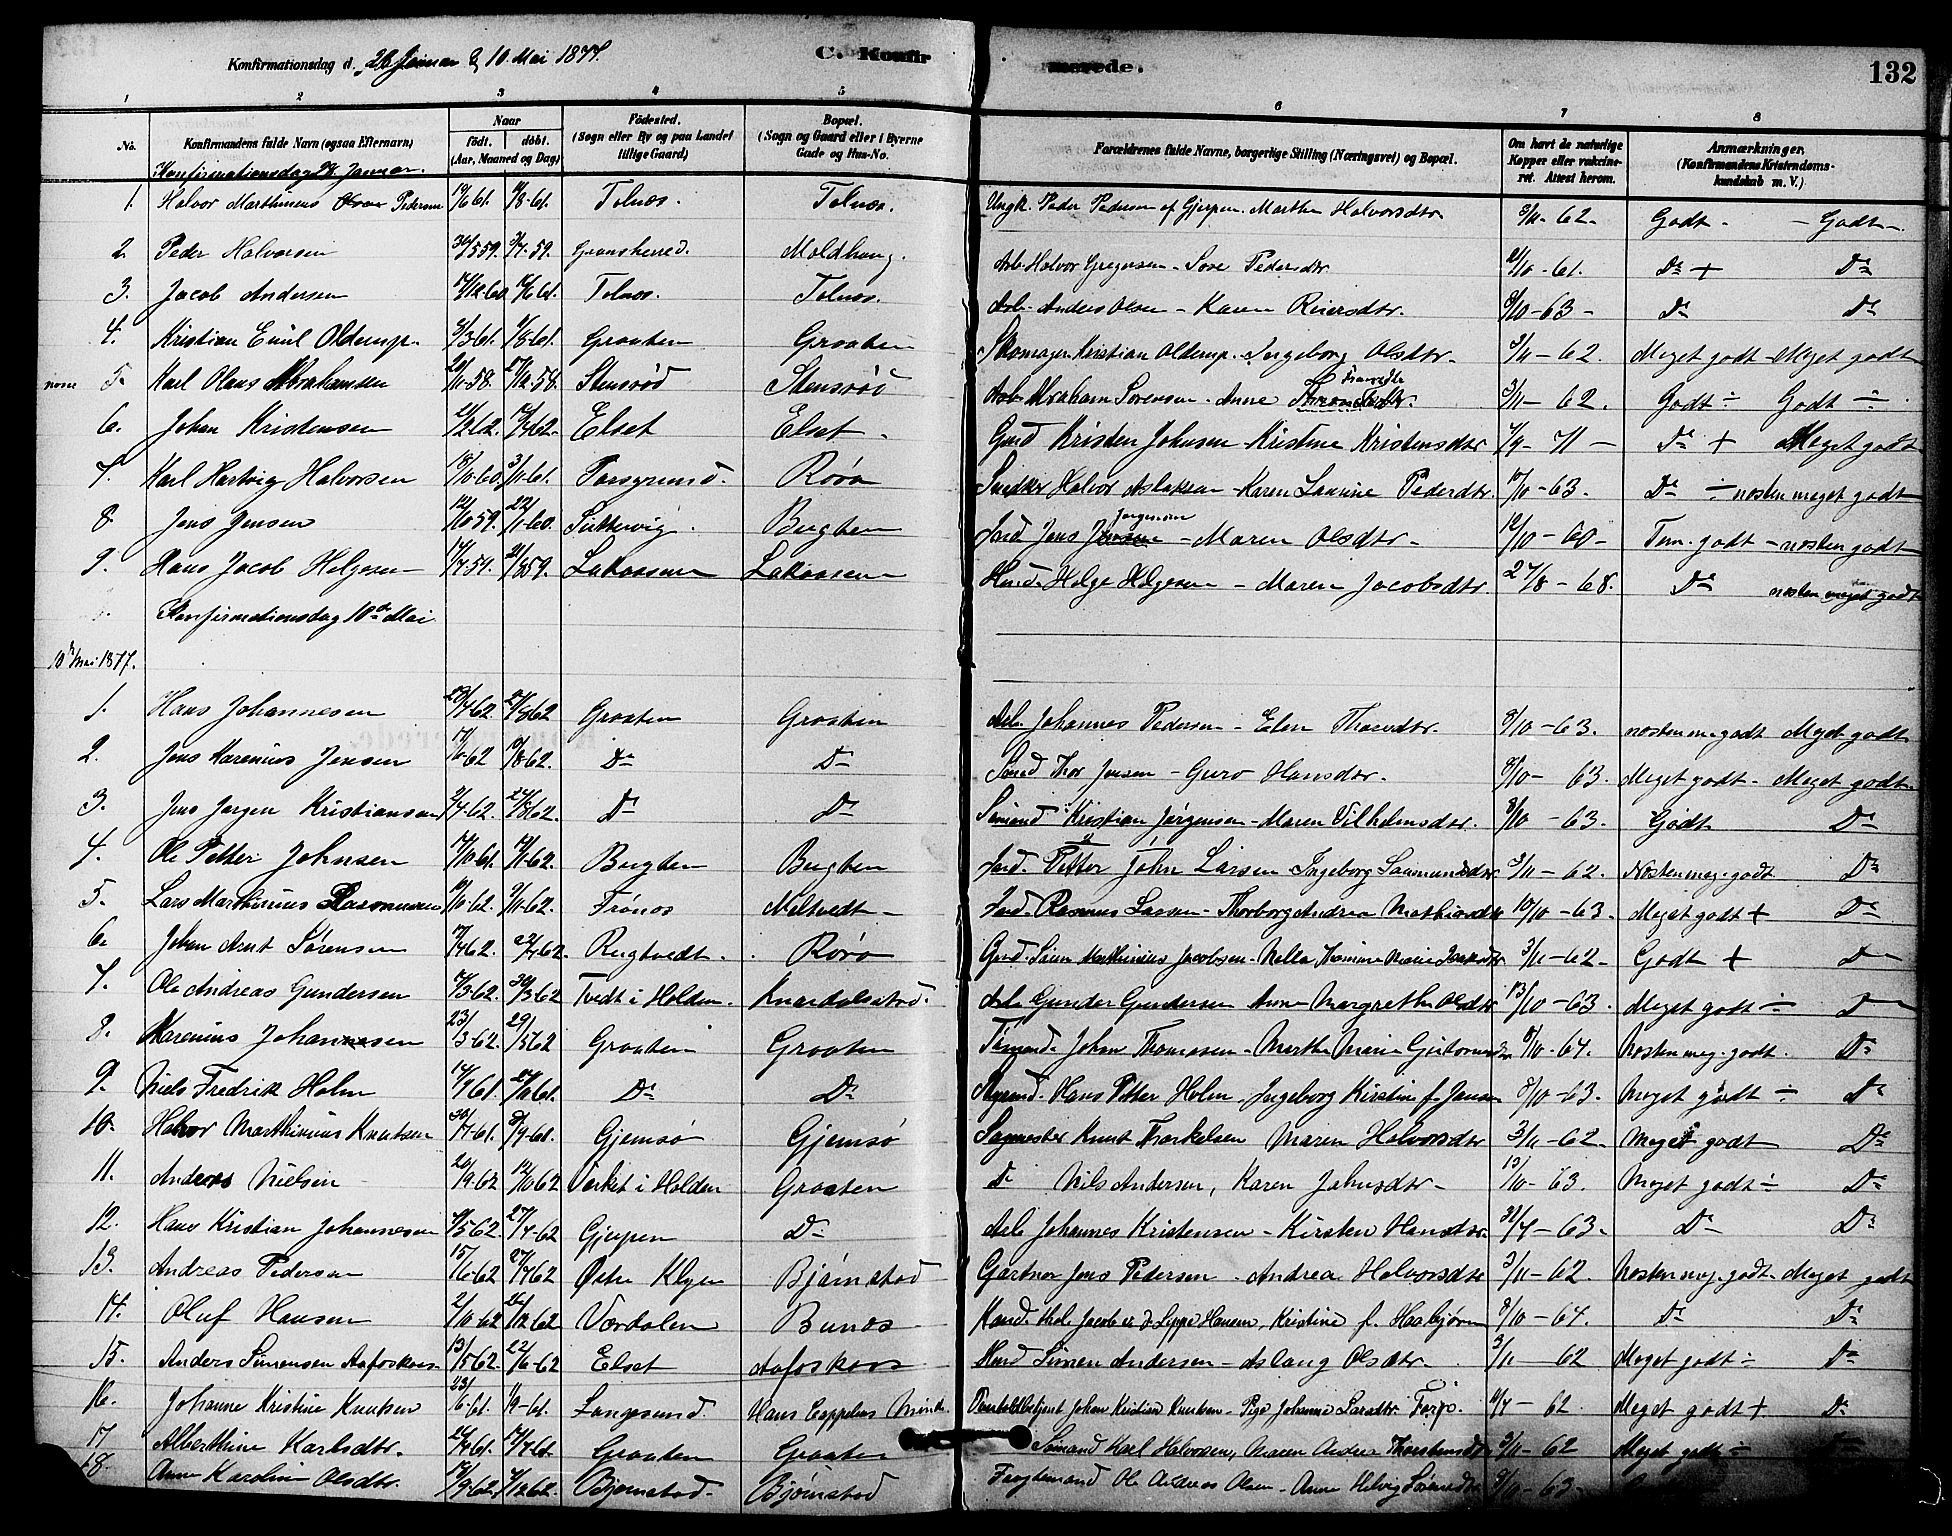 Konfirmationsdag d. 28 Januar & 10 Mai 1877. C. Konfirmerede. 132
1 2 3 4 5 6 7 8
No. Konfirmandens fulde Navn (ogsaa Efternavn) Naar født. døbt. (Aar, Maaned og Dag) Fødested. (Sogn eller By og paa Landet tillige Gaard) Bopæl. (Sogn og Gaard eller i Byerne Gade og Hus-No. Forældrenes fulde Navne, borgerlige Stilling (Næringsvei) og Bopæl. Om havt de naturlige Kopper eller vakcineret. Attest herom. Anmærkninger. (Konfirmandens Kristendomskundskab m. V.)
Konfirmationsdag 28 Januar.
1. Halvor Marthinius Pedersen Tolnæs. Tolnæs. Ungk. Peder Pedersen af Gjerpen. Marthe Halvorsdtr. 3/11-62. Godt - Godt
2. Peder Halvorsen 30/5 59. 3/7-59. Gransherred. Moldhaug. Arb. Halvor Gregersen - Pedersdtr. -61. Do + Do
3. Jacob Andersen 17/12 60 16/6 61. Tolnæs. Tolnæs. Arb. Anders Olsen - Karen Reiersdtr. 8/10-63 - Do Do
4. Kristian Emil Olderup. 3/3 61. 4/8-61. Graaten Graaten Skomager Kristian Olderup. Ingeborg Olsdtr. 3/11-62. Meget godt - Meget godt
5. Karl Olaus Abrahamsen -58. -58. Stensrød Stensrød Arb. Abraham Sørensen - Anne 3/11-62. Godt ÷ Godt ÷
6. Johan Kristensen 62. 62. Elset Elset Gmd Kristen Johnsen Kristine Kristensdtr 7/9-71 - Do + Meget godt
7. Karl Hartvig Halvorsen 18/10-60. 3/11-61. Porsgrund. Rørø Snedker Halvor Aslaksen - Karen Laurine Pedersdtr. 17/10-63. Do ÷ næsten meget godt
8. Jens Jensen 12/10 59. 22/1-60. Bugten Jens Jørgensen - Maren Olsdtr - 12/10-60 - Tem. godt - næsten godt
9. Hans Jacob Helgesen 14/7 59. 21/8 59. Lakaasen Lakaasen Husmd. Helge Helgesen - Maren Jacobsdtr. 27/8-68. Do næsten meget godt
Konfirmationsdag 10de Mai
10de Mai 1877.
1. Hans Johannesen 62. 62 Graaten Graaten Arb. Johannes Pedersen - Elen Thorsdtr. 8/10-63. næsten meg godt Meget godt
2. Jens Karenius Jensen 62 62. Do Do Sømd Thor Jensen - Guro Hansdtr. 8/10-63. Meget godt - Meget godt.
3. Jens Jørgen Kristiansen 2/7-62. 24/8 62. Do Do Sømand Kristian Jørgensen - Maren Vilhelmsdtr. 8/10-63. Godt Do
4. Ole Petter Johnsen 10-61. 62. Bugten Bugten Petter John Larsen Ingeborg Saamundsdtr 3/11-62. Næsten meg. godt Do
5. Lars Marthinius Rasmussen 62. 62. Frønæs Meltvedt - Rasmus Larsen - Thorborg Andrea Mathiasdtr 10/10-63. Meget godt + Do
6. Johan Arnt Sørensen 62. 62. Rugtvedt. Rørø Gmd. Søren Marthinius Jacobsen - 3/11-62 - Godt + Do
7. Ole Andreas Gundersen 3-62. 30/3 62 Tvedt i Holden. Knardalsstad. Arb Gunder Gundersen Anne Margrethe Olsdtr 13/10-63. Meget godt ÷ Do
8. Karenius Johannesen 23/3-62. 29/5 62 Graaten Graaten Tømmd. Johan Thomassen - Marthe Marie Guttormsdtr 8/10-64. Næsten meg. godt. Do
9. Niels Fredrik Holm 14/9 61. 61. Do Do Hans Petter Holm - Ingeborg Kirstine f. Jansen 8/10-63. Meget godt ÷ Do
10. Halvor Marthinius Knutsen 30/7-61. 8/9-61. Gjemsø Gjemsø Sagmester Knut Thorkelsen Maren Halvorsdtr 3/11-62. Meget godt Do
11. Andreas Nielsen 20/9-62 12/10 62 Verket i Holden Graaten Do Nils Andersen, Karen Johnsdtr - 13/10-63. Meget godt ÷ Do
12. Hans Kristian Johannesen 5 62. 27/7-62 Gjerpen Do Arb Johannes Kristensen - Kirsten Hansdtr. 31/7-63. Do Do
13. Andreas Pedersen 15/6-62 27/7 62 Østre Klyve Bjørnstad Gartner Jens Pedersen - Andrea Halvorsdtr 3/11-62. Næsten meg. godt. Meget godt
14. Oluf Hansen 2/10 62 26/12 62 Værdalen Bunæs Kand. theol. Jacob v. d. Lippe Hansen, Kristine f. 8/10-64. Do Do
15. Anders Simensen Aafoskaas 13/5-62. 22/6-62 Elset Aafoskaas Husmd Simen Andersen - Aslaug Olsdtr - 3/11-62 Meget godt ÷ Do
16. Johanne Kristine Knutsen 23/6-61. 1/9-61. Langesund. Hans Cappelens Minde. Johan Kristian Knutsen - Johanne Larsdtr. 62. Meget godt + Do
17 Alberthine Karlsdtr. 61. 61. Graaten Graaten Sømand Karl Halvorsen, Maren Andrea Thorstensdtr 3/11-62 Meget godt ÷
18. Anne Karoline Olsdtr. 62. 62. Bjørnstad. Bjørnstad Ole Andreas Olsen - Anne Helvig Sørensdtr 63.